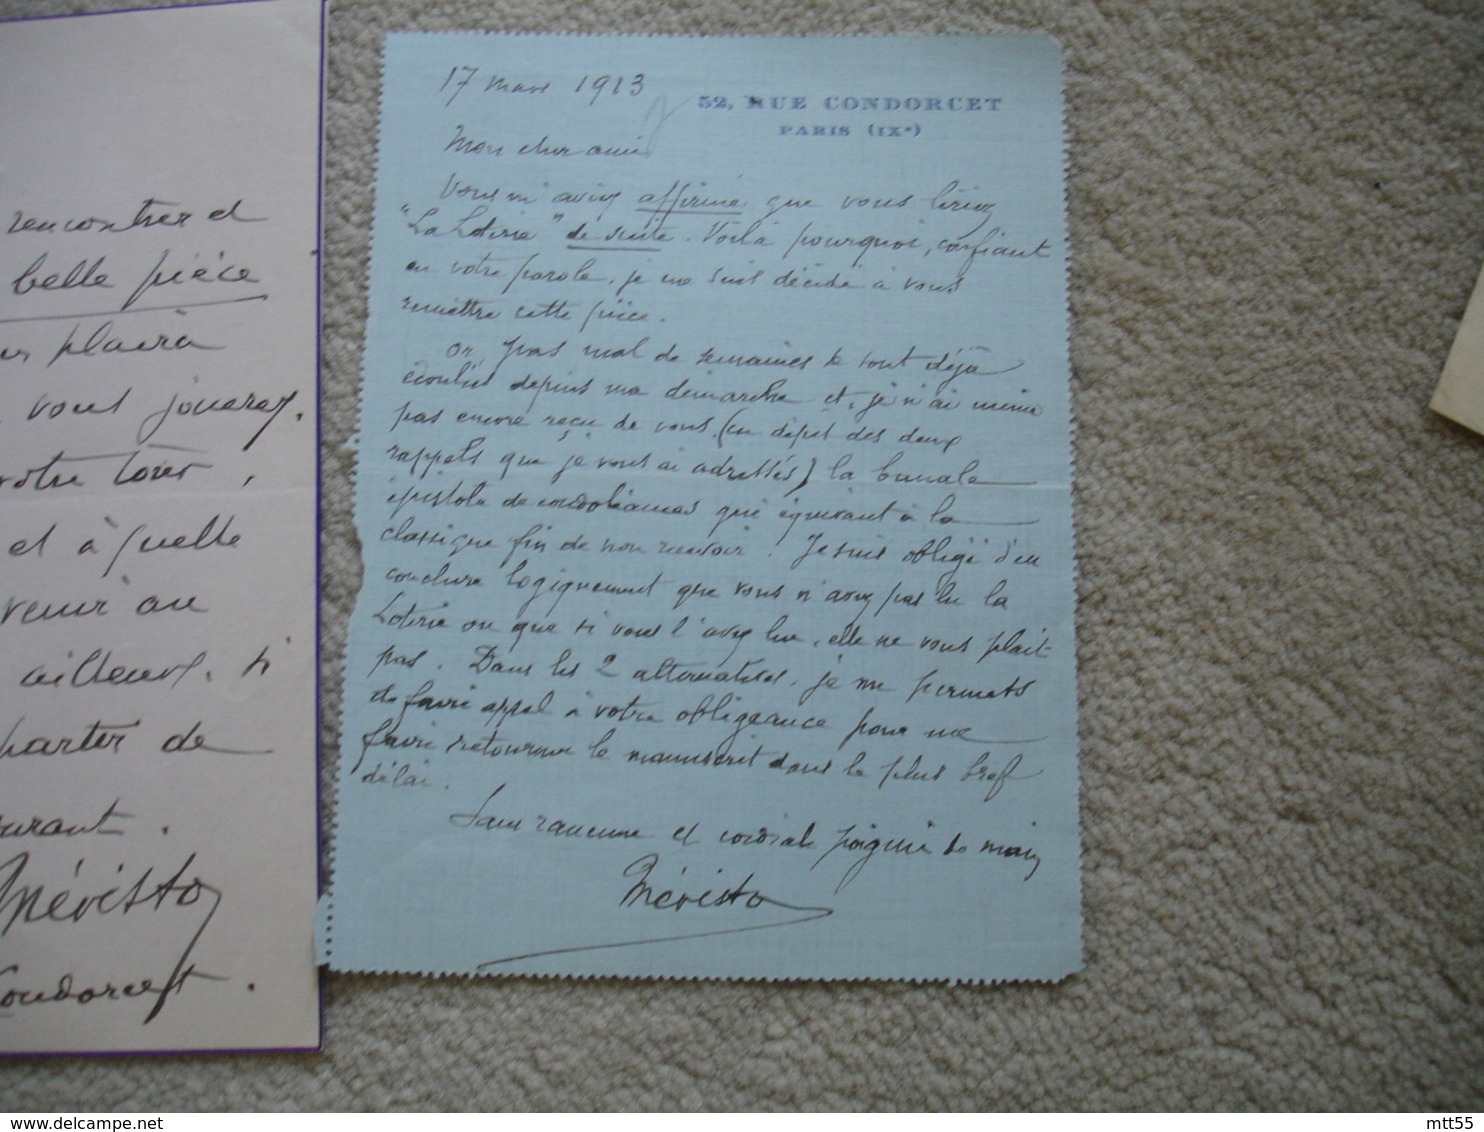 rencontrer et
belle pièce
plaira
vous jouerez.
votre
et à quelle
venir au
ailleurs. si
parter de
courant.
Mévisto
Condorcet.
17 Mars 1913
52, RUE CONDORCET
PARIS (IXe)
Mon cher ami
Vous m'aviez affirmé que vous liriez
"La Loterie" de suite. Voilà pourquoi, confiant
en votre parole, je me suis décidé à vous
remettre cette pièce.
Or, pas mal de semaines se sont déjà
écoulées depuis ma démarche et, je n'ai même
pas encore reçu de vous, (en dépit des deux
rappels que je vous ai adressés) la banale
épistole de condoléances qui équivaut à la
classique fin de non recevoir. Je suis obligé d'en
conclure logiquement que vous n'avez pas lu la
Loterie ou que si vous l'avez lue, elle ne vous plait
pas. Dans les 2 alternatives, je me permets
de faire appel à votre obligeance pour me
faire retourner le manuscrit dans le plus bref
délai.
Sans rancune et cordiale poignée de main
Mévisto
mtt55